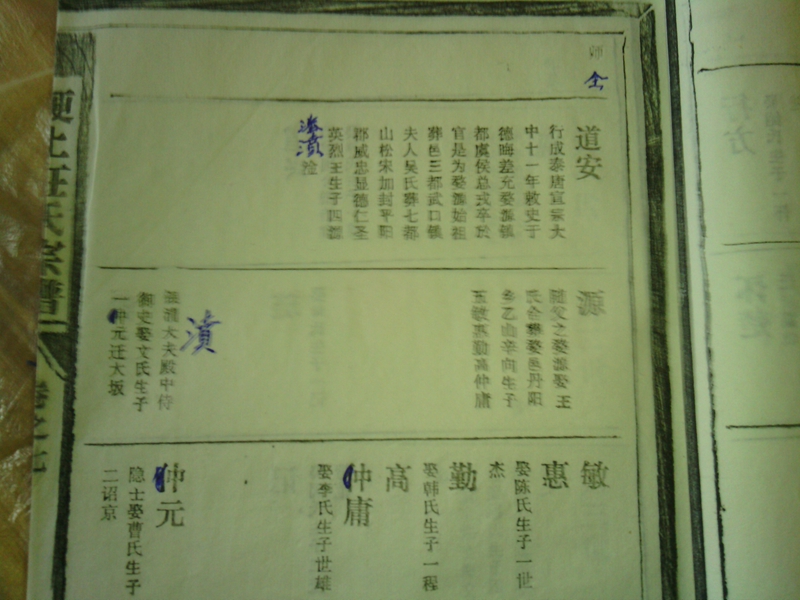 道安
行成泰唐宣宗大
中十一年敕史于
德晦差充婺源镇
都虞侯总戎卒於
官是为婺源始祖
葬邑三都武口镇
夫人吴氏葬七都
山松宋加封平阳
郡威忠显德仁圣
英烈王生子四源
濆淦
源
随父之婺源娶王
氏合葬婺邑丹阳
乡乙山辛向生子
五敏惠勤高仲庸
濆
大夫殿中侍
御史娶文氏生子
一仲元迁大坂
敏
惠
娶陈氏生子一世
杰
勤
娶韩氏生子一程
高
仲庸
娶李氏生子世雄
仲元
隐士娶曹氏生子
二诏京
上汪氏宗谱 卷之七